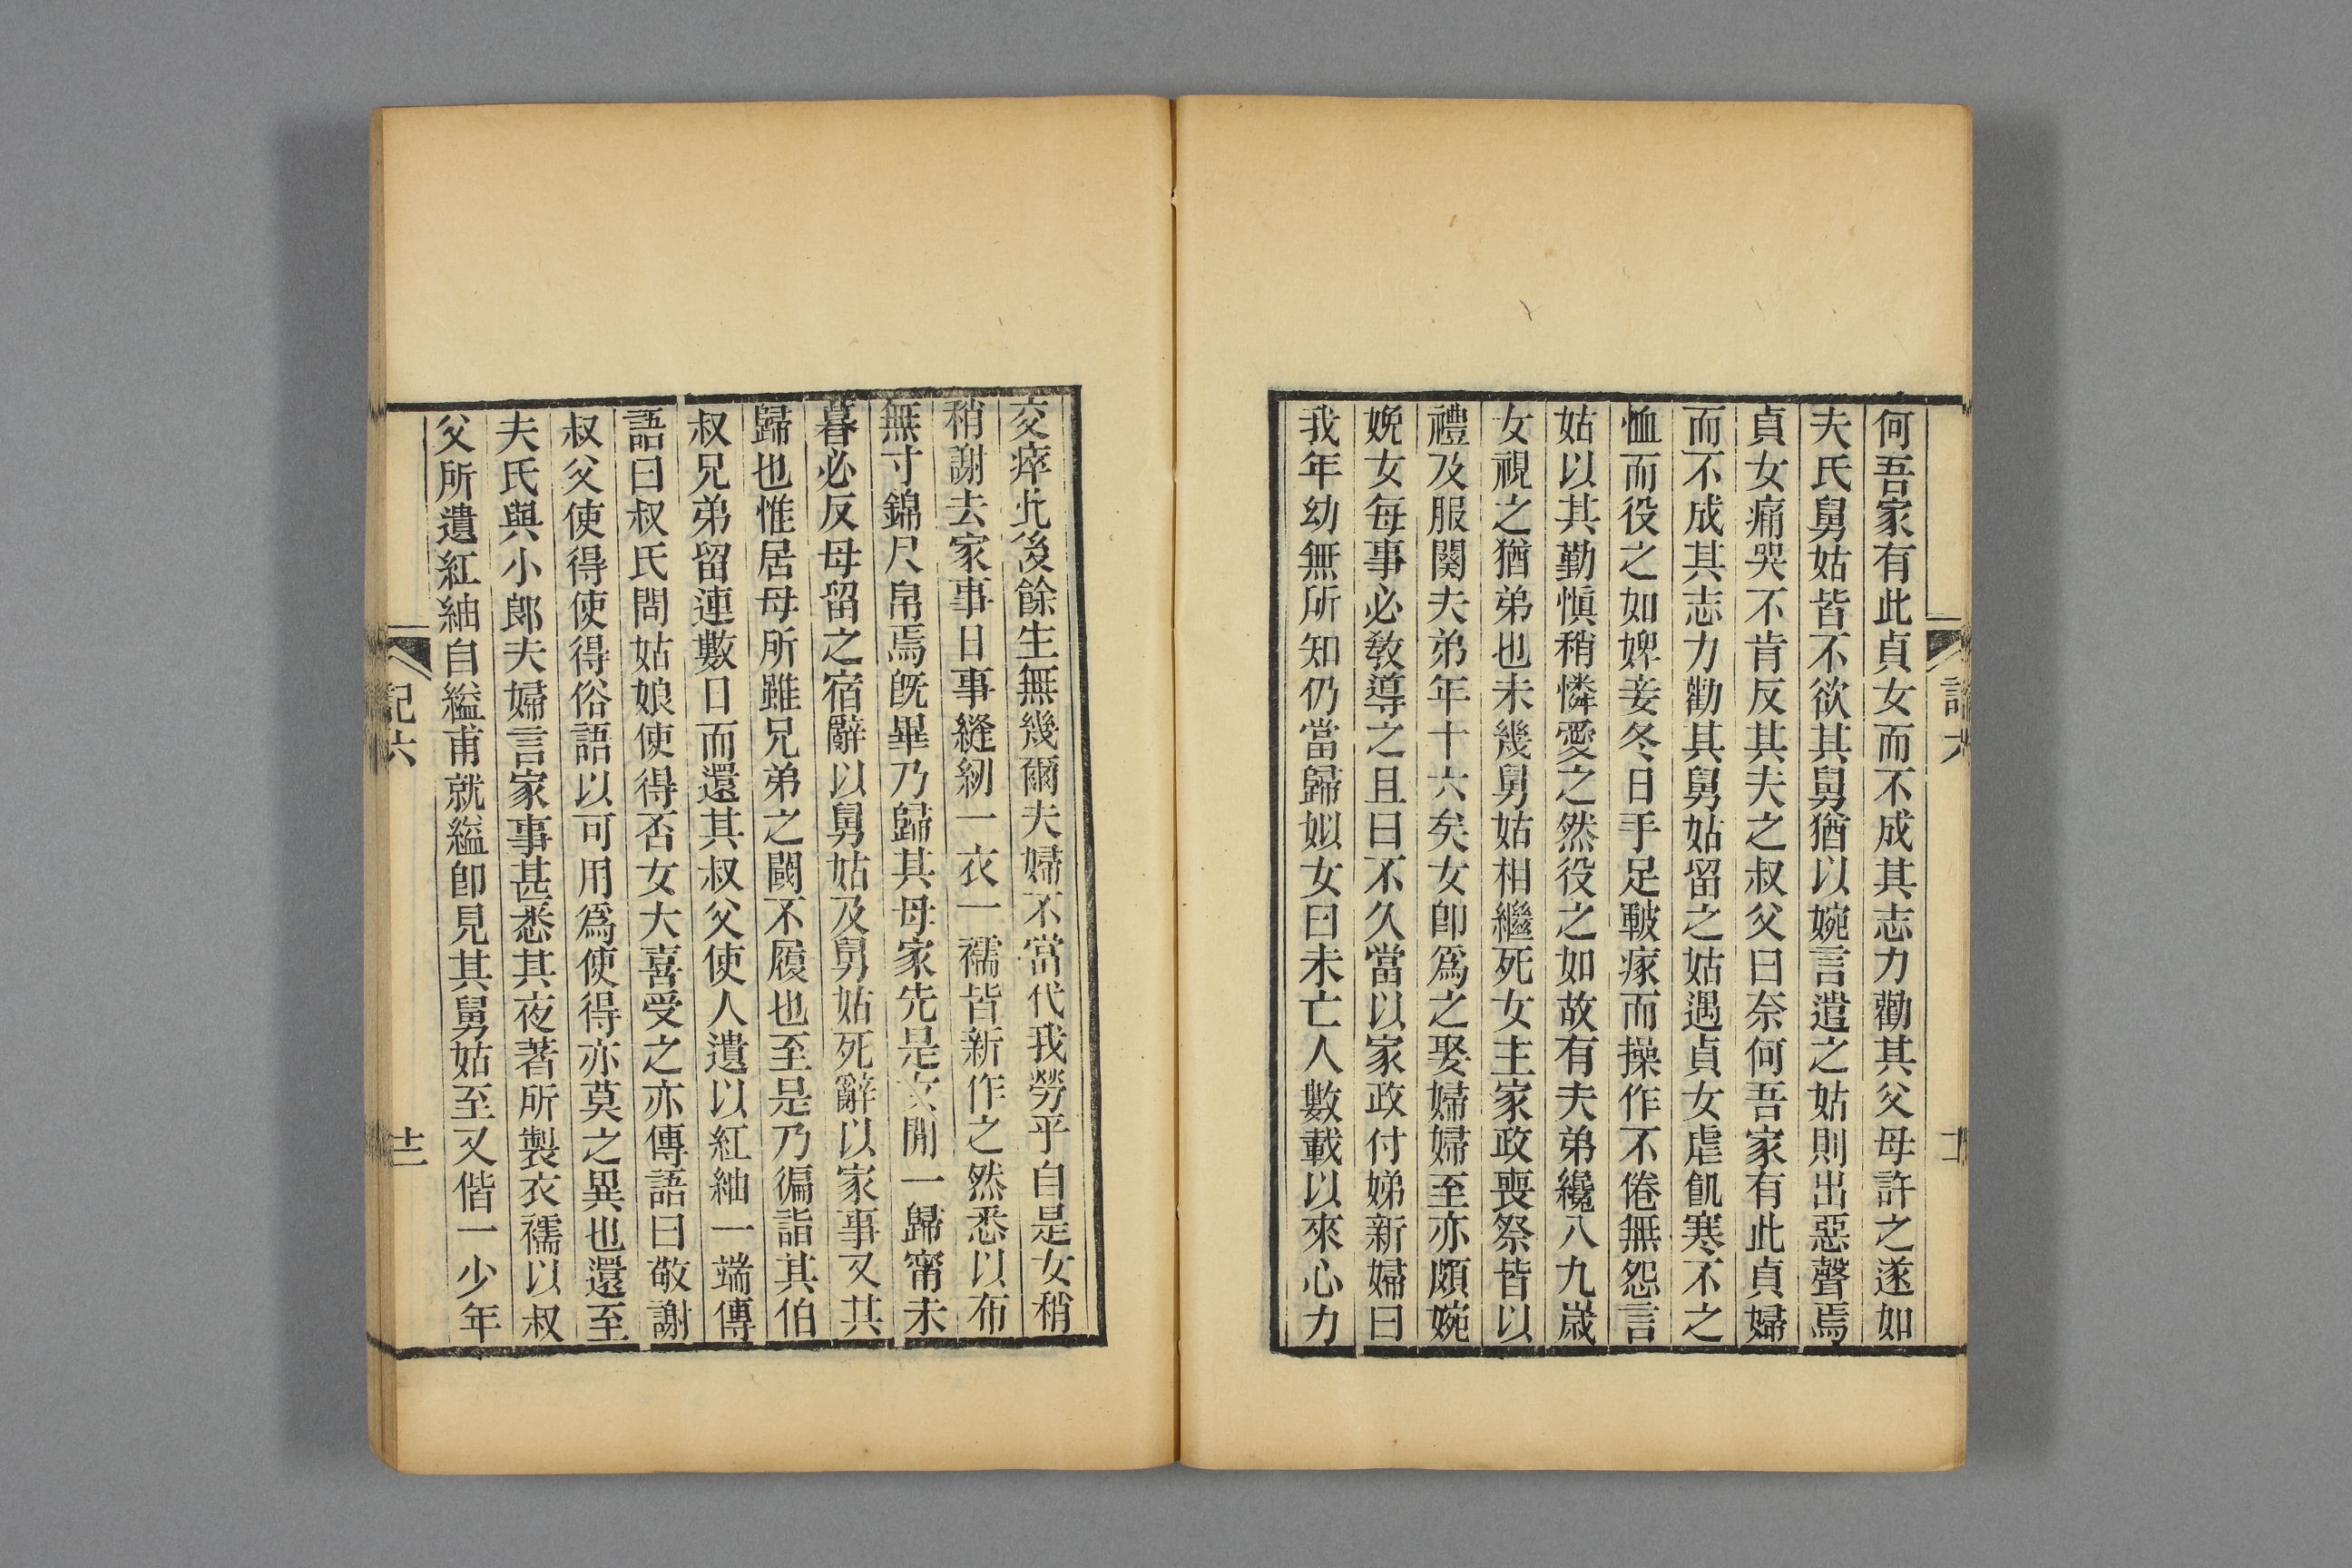 何吾家有此貞女而不成其志力勸其父母許之遂如
夫氏舅姑皆不欲其舅猶以婉言遣之姑則出惡聲焉
貞女痛哭不肯反其夫之叔父曰奈何吾家有此貞婦
而不成其志力勸其舅姑留之姑遇貞女虐飢寒不之
恤而役之如婢妾冬日手足皸瘃而操作不倦無怨言
姑以其勤慎稍憐愛之然役之如故有夫弟纔八九歲
女視之猶弟也未幾舅姑相繼死女主家政喪祭皆以
禮及服闋夫弟年十六矣女卽爲之娶婦婦至亦頗婉
娩女每事必敎導之且曰不久當以家政付娣新婦曰
我年幼無所知仍當歸姒女曰未亡人數載以來心力
交瘁此後餘生無幾爾夫婦不當代我勞乎自是女稍
稍謝去家事日事縫紉一衣一襦皆新作之然悉以布
無寸錦尺帛焉旣畢乃歸其母家先是女閒一歸甯未
暮必反母留之宿辭以舅姑及舅姑死辭以家事又其
歸也惟居母所雖兄弟之闥不履也至是乃徧詣其伯
叔兄弟留連數日而還其叔父使人遺以紅紬一端傳
語曰叔氏問姑娘使得否女大喜受之亦傳語曰敬謝
叔父使得使得俗語以可用爲使得亦莫之異也還至
夫氏與小郎夫婦言家事甚悉其夜著所製衣襦以叔
父所遺紅紬自縊甫就縊卽見其舅姑至又偕一少年
記六
十二